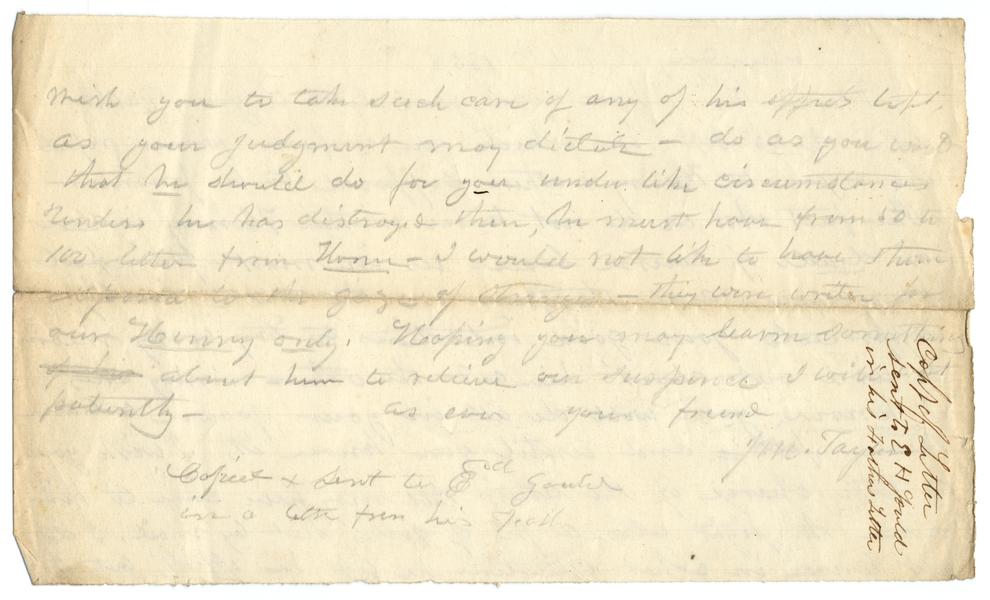 wish you to take such care of any of his effects left,
as your judgment may dictate – do as you would
that he should do for you under like circumstances
Unless he has distroyed them, he must have from 50 to
100 letter from Home – I would not like to have them
exposed to the gaze of strangers – they were writen for
our Henny only. Hoping you may learn something
about him to relieve our suspence I will
patiently – as ever your friend
J. M. Taylor
Copied & sent to Ed Gould
in a letter from his
Copy of Letter
sent to E H Gould
in his Fathers Letter